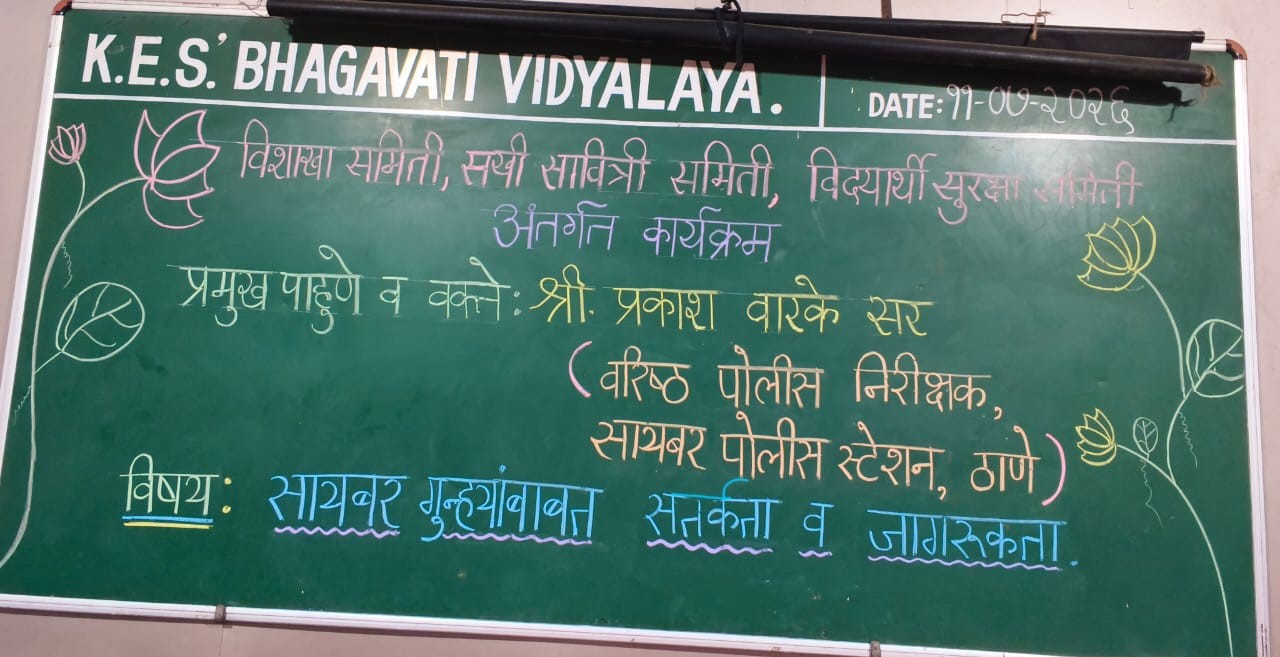 K.E.S.' BHAGAVATI VIDYALAYA. DATE: ११-०७-२०२६
विशाखा समिती, सखी सावित्री समिती, विद्यार्थी सुरक्षा समिती
अंतर्गत कार्यक्रम
प्रमुख पाहुणे व वक्ते: श्री. प्रकाश वारके सर
(वरिष्ठ पोलीस निरीक्षक,
सायबर पोलीस स्टेशन, ठाणे)
विषय: सायबर गुन्ह्यांबाबत सतर्कता व जागरूकता.